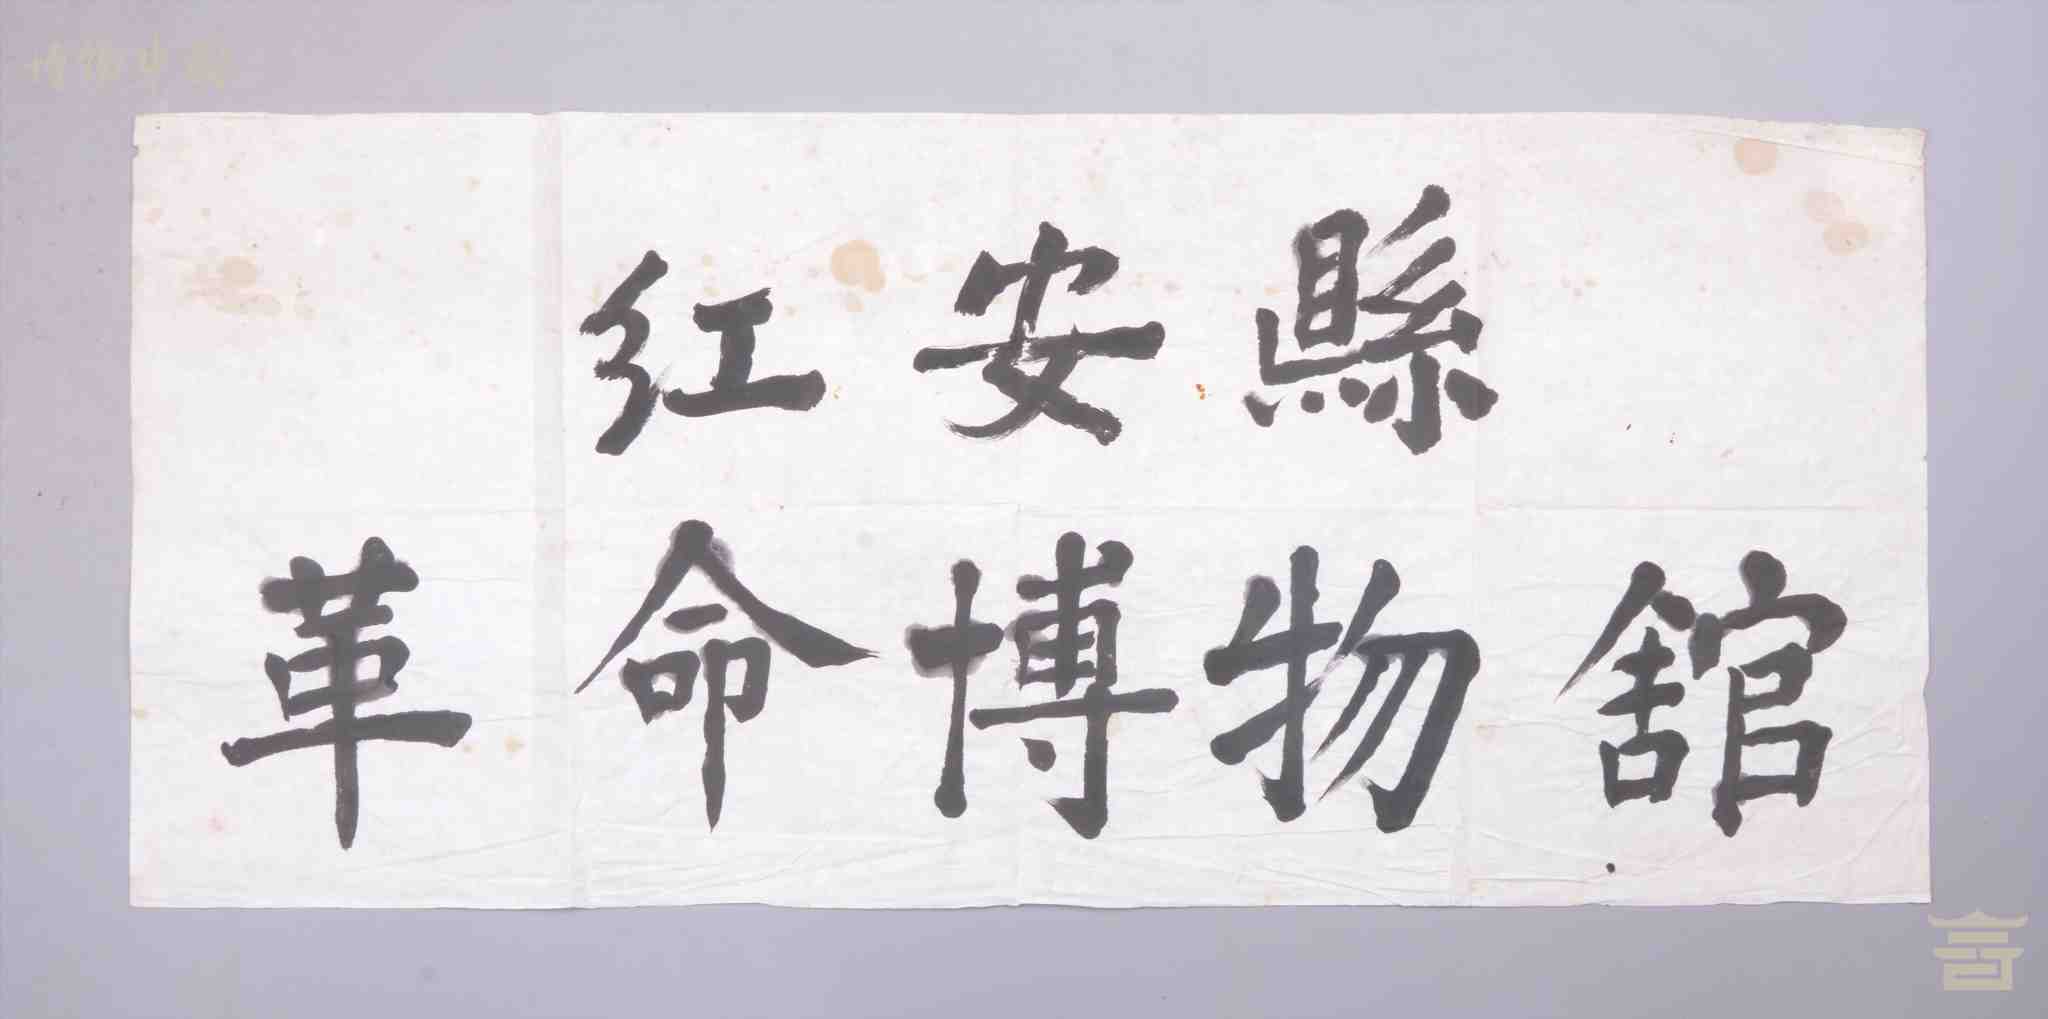 博物中国
红安縣
革命博物舘